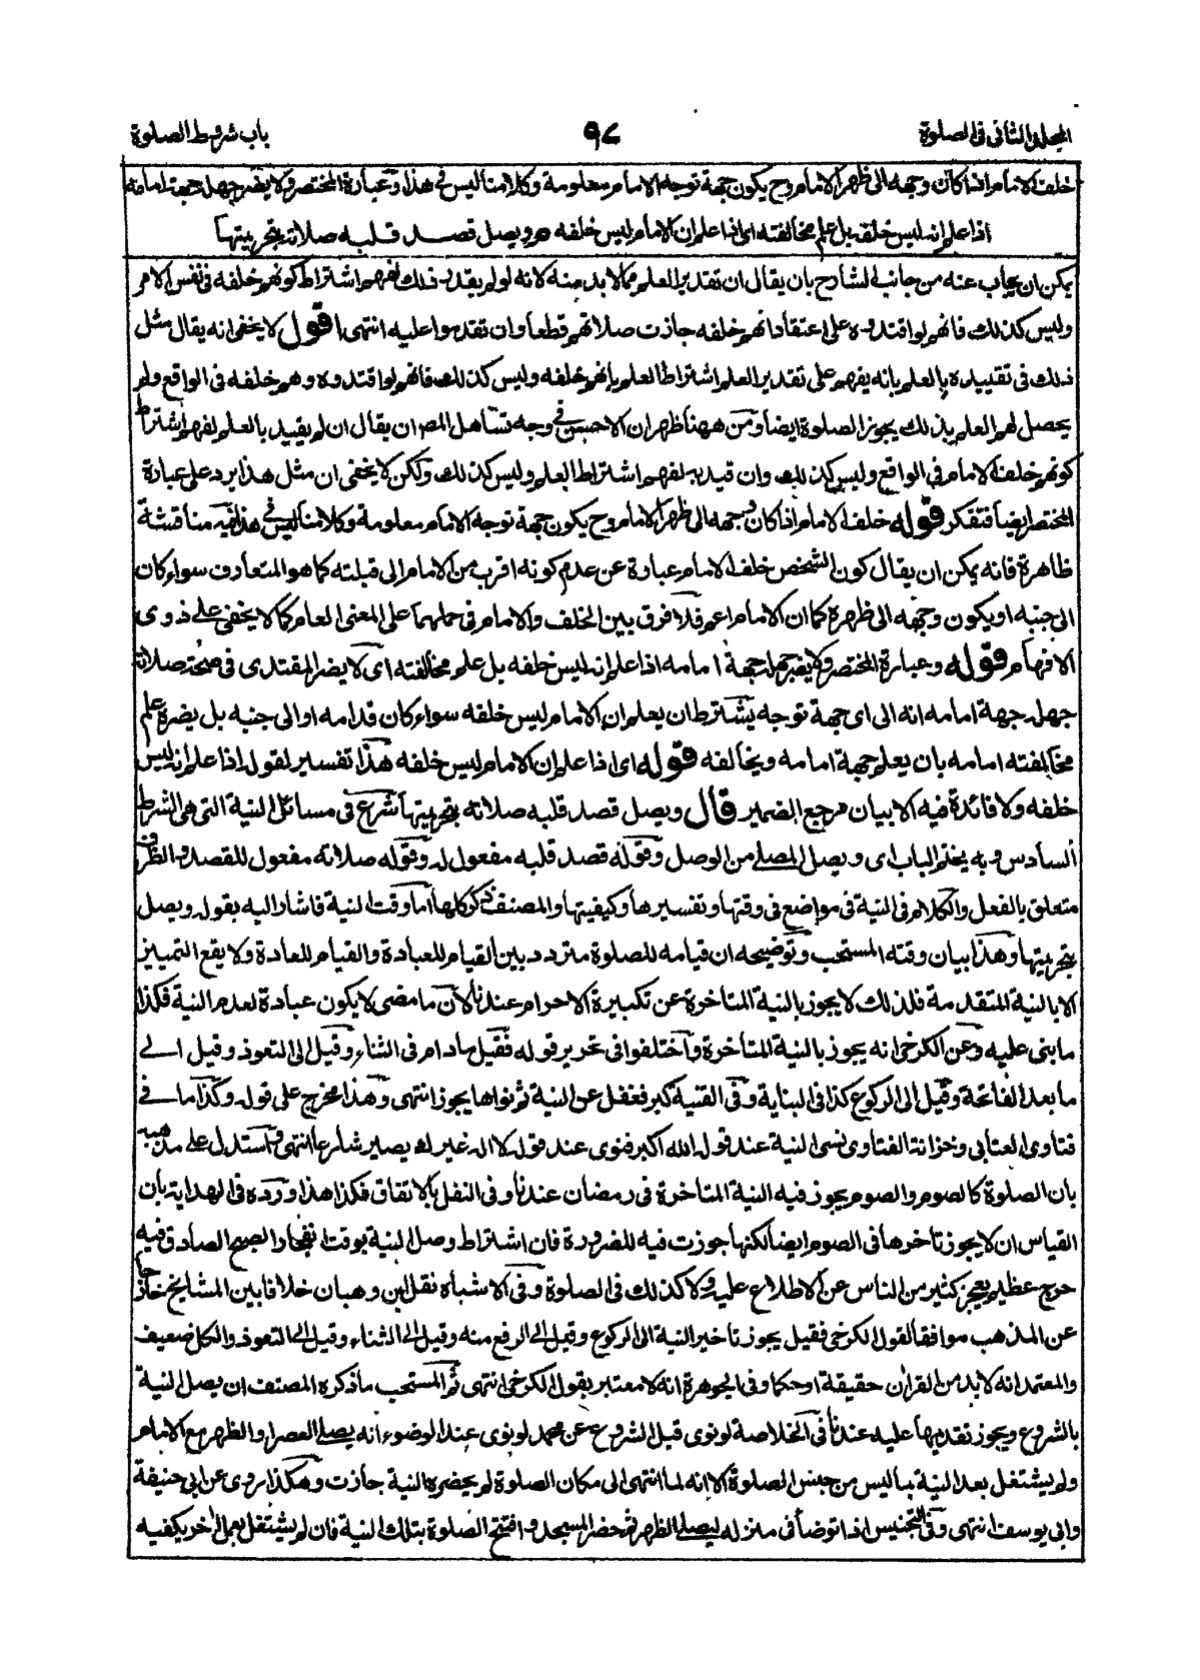 المجلد الثانى فى الصلوة ٩٨ باب شروط الصلوة
خلف الامام اذا كان وجهه الى ظهر الامام وح يكون جهة توجه الامام معلومة وكلامنا ليس فى هذا وعبارة المختصر ولا يضر جهل جهة امامه
اذا علم انه ليس خلفه بل علم مخالفته اى اذا علم ان الامام ليس خلفه م ويصل قصد قلبه صلاته بتحريمتها
يمكن ان يجاب عنه من جانب الشارح بان يقال ان تقدير العلم مما لا بد منه لانه لو لم يقدر ذلك لفهم اشتراط كونهم خلفه فى نفس الامر
وليس كذلك فانهم لو اقتدوه على اعتقاد انهم خلفه جازت صلاتهم قطعا وان تقدموا عليه انتهى اقول لا يخفى انه يقال مثل
ذلك فى تقييده بالعلم بانه يفهم على تقدير العلم اشتراط العلم بانهم خلفه وليس كذلك فانهم لو اقتدوه وهم خلفه فى الواقع ولم
يحصل لهم العلم بذلك يجوز الصلوة ايضا ومن ههنا ظهر ان الاحسن فى وجه تساهل المصـ ان يقال ان لم يقيد بالعلم لفهم اشتراط
كونهم خلف الامام فى الواقع وليس كذلك وان قيد به لفهم اشتراط العلم وليس كذلك ولكن لا يخفى ان مثل هذا يرد على عبارة
المختصر ايضا فتفكر قوله خلف الامام اذا كان وجهه الى ظهر الامام وح يكون جهة توجه الامام معلومة وكلامنا ليس فى هذا فيه مناقشة
ظاهرة فانه يمكن ان يقال كون الشخص خلف الامام عبارة عن عدم كونه اقرب من الامام الى قبلته كما هو المتعارف سواء كان
الى جنبه او يكون وجهه الى ظهره كما ان الامام اعم فلا فرق بين الخلف والامام فى حملهما على المعنى العام كما لا يخفى على ذوى
الافهام قوله وعبارة المختصر ولا يضر جهل جهة امامه اذا علم انه ليس خلفه بل علم مخالفته اى لا يضر المقتدى فى صحة صلاته
جهل جهة امامه انه الى اى جهة توجه يشترط ان يعلم ان الامام ليس خلفه سواء كان قدامه او الى جنبه بل يضره علم
مخالفته امامه بان يعلم جهة امامه ويخالفه قوله اى اذا علم ان الامام ليس خلفه هذا تفسير لقوله اذا علم انه ليس
خلفه ولا فائدة فيه الا بيان مرجع الضمير قال ويصل قصد قلبه صلاته بتحريمتها شرع فى مسائل النية التى هى الشرط
السادس وبه يختم الباب اى ويصل المصلى من الوصل وقوله قصد قلبه مفعول له وقوله صلاته مفعول للقصد والظرف
متعلق بالفعل والكلام فى النية فى مواضع فى وقتها وتفسيرها وكيفيتها والمصنف ذكر كلها اما وقت النية فاشار اليه بقوله ويصل
بتحريمتها وهذا بيان وقته المستحب وتوضيحه ان قيامه للصلوة متردد بين القيام للعبادة والقيام للعادة ولا يقع التمييز
الا بالنية المتقدمة فلذلك لا يجوز بالنية المتاخرة عن تكبيرة الاحرام عندنا لان ما مضى لا يكون عبادة لعدم النية فكذا
ما بنى عليه وعن الكرخى انه يجوز بالنية المتاخرة واختلفوا فى تحرير قوله فقيل ما دام فى الثناء وقيل الى التعوذ وقيل الى
ما بعد الفاتحة وقيل الى الركوع كذا فى البناية وفى القنية كبر فغفل عن النية ثم نواها يجوز انتهى وهذا مخرج على قوله وكذا ما فى
فتاوى العتابى وخزانة الفتاوى نسى النية عند قوله الله اكبر فنوى عند قوله لا اله غيرك يصير شارعا انتهى واستدل على مذهبه
بان الصلوة كالصوم والصوم يجوز فيه النية المتاخرة فى رمضان عندنا وفى النفل بالاتفاق فكذا هذا ورده فى الهداية بان
القياس ان لا يجوز تاخرها فى الصوم ايضا لكنها جوزت فيه للضرورة فان اشتراط وصل النية بوقت انفجار الصبح الصادق فيه
حرج عظيم يعجز كثير من الناس عن الاطلاع عليه ولا كذلك فى الصلوة وفى الاشباه نقل ابن وهبان خلافا بين المشايخ خارجا
عن المذهب موافقا لقول الكرخى فقيل يجوز تاخير النية الى الركوع وقيل الى الرفع منه وقيل الى الثناء وقيل الى التعوذ والكل ضعيف
والمعتمد انه لا بد من القران حقيقة او حكما وفى الجوهرة انه لا معتبر بقول الكرخى انتهى ثم المستحب ما ذكره المصنف ان يصل النية
بالشروع ويجوز تقديمها عليه عندنا فى الخلاصة لو نوى قبل الشروع عن محمد لو نوى عند الوضوء انه يصلى العصر او الظهر مع الامام
ولم يشتغل بعد النية بما ليس من جنس الصلوة الا انه لما انتهى الى مكان الصلوة لم يحضره النية جازت وهكذا روى عن ابى حنيفة
وابى يوسف انتهى وفى التجنيس اذا توضأ فى منزله ليصلى الظهر ثم حضر المسجد وافتتح الصلوة بتلك النية فان لم يشتغل بعمل اخر يكفيه